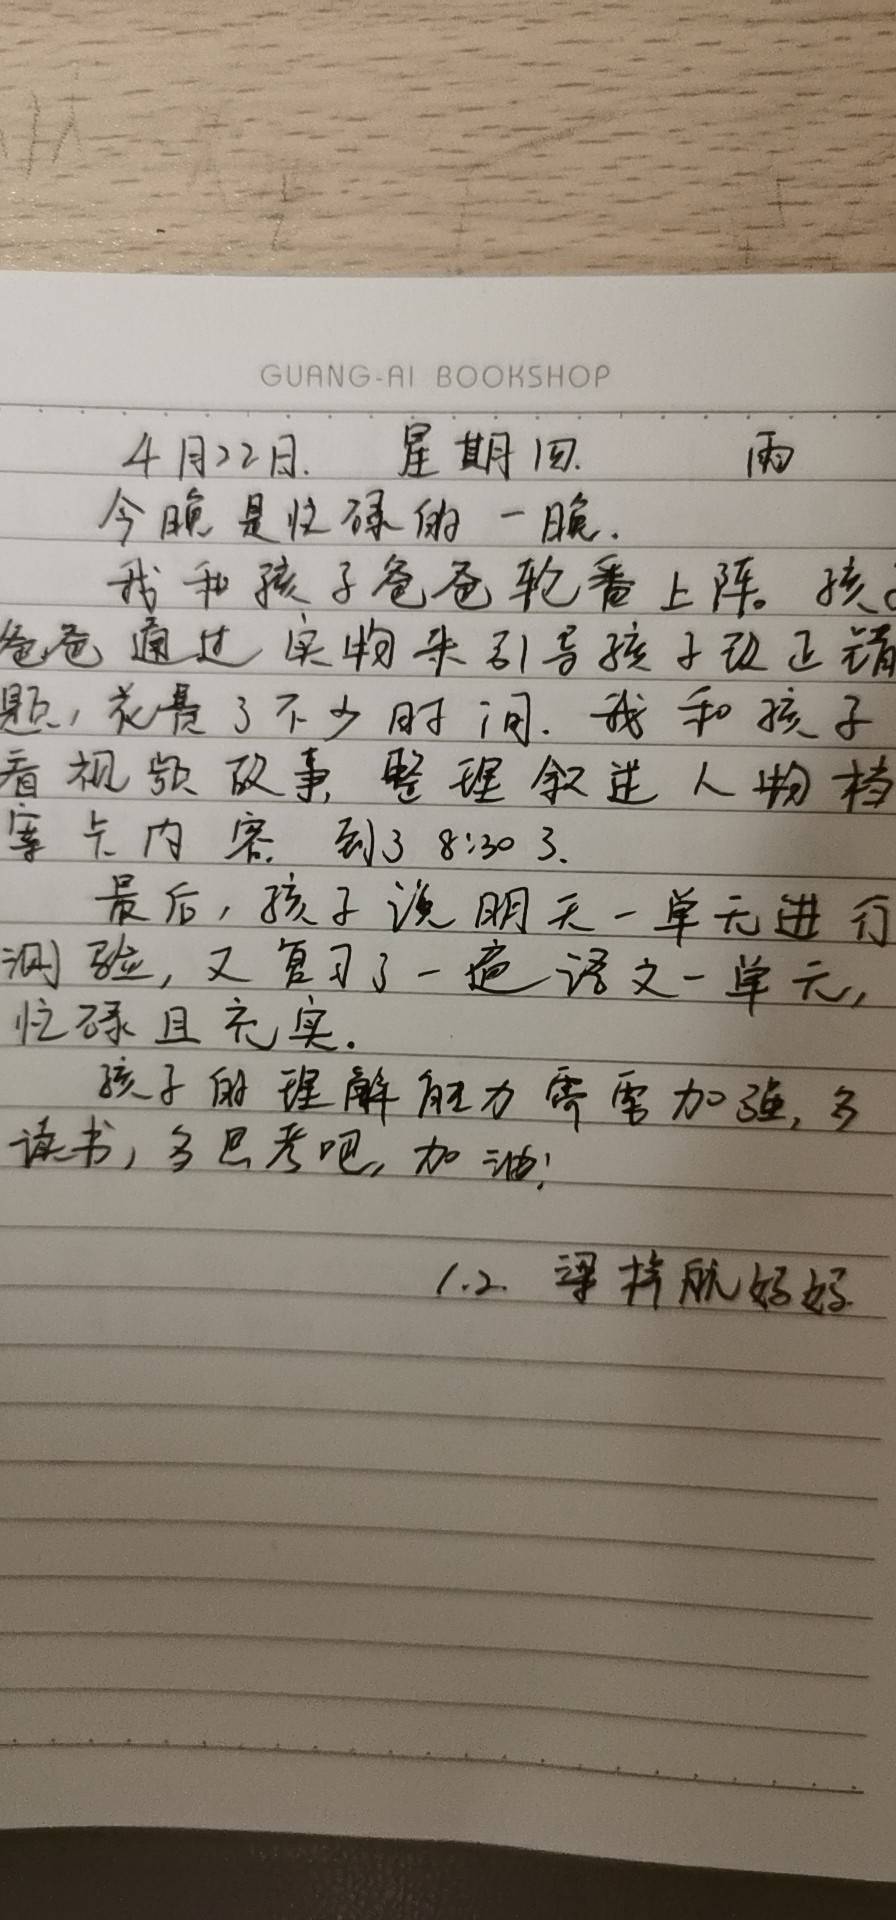 GUANG-AI BOOKSHOP
4月22日. 星期四. 雨
今晚是忙碌的一晚.
我和孩子爸爸轮番上阵。孩子
爸爸通过实物来引导孩子改正错
题,花费了不少时间.我和孩子
看视频故事,整理叙述人物档
案卡内容.到了8:30了.
最后,孩子说明天一单元进行
测验,又复习了一遍语文一单元,
忙碌且充实.
孩子的理解能力需需加强,多
读书,多思考吧,加油!
1.2. 梁梓航妈妈